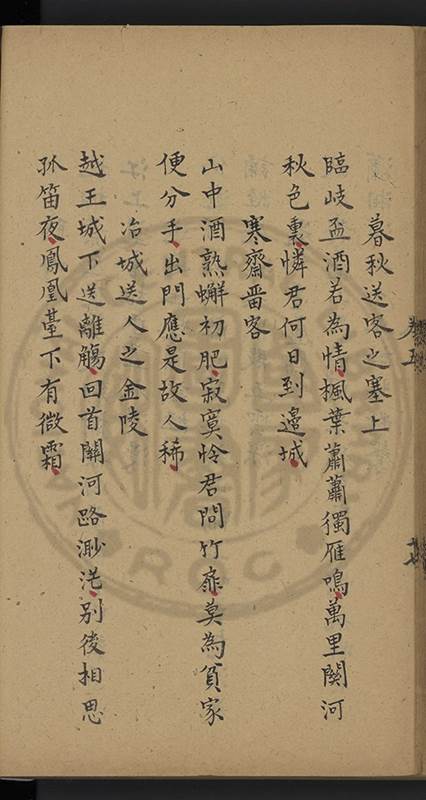 暮秋送客之塞上
臨岐盃酒若為情楓葉蕭蕭獨雁鳴萬里關河
秋色裏憐君何日到邊城
寒齋畱客
山中酒熟蠏初肥寂寞怜君問竹扉莫為貧家
便分手出門應是故人稀
冶城送人之金陵
越王城下送離觴回首關河路渺茫別後相思
孤笛夜鳳凰臺下有微霜
RGC